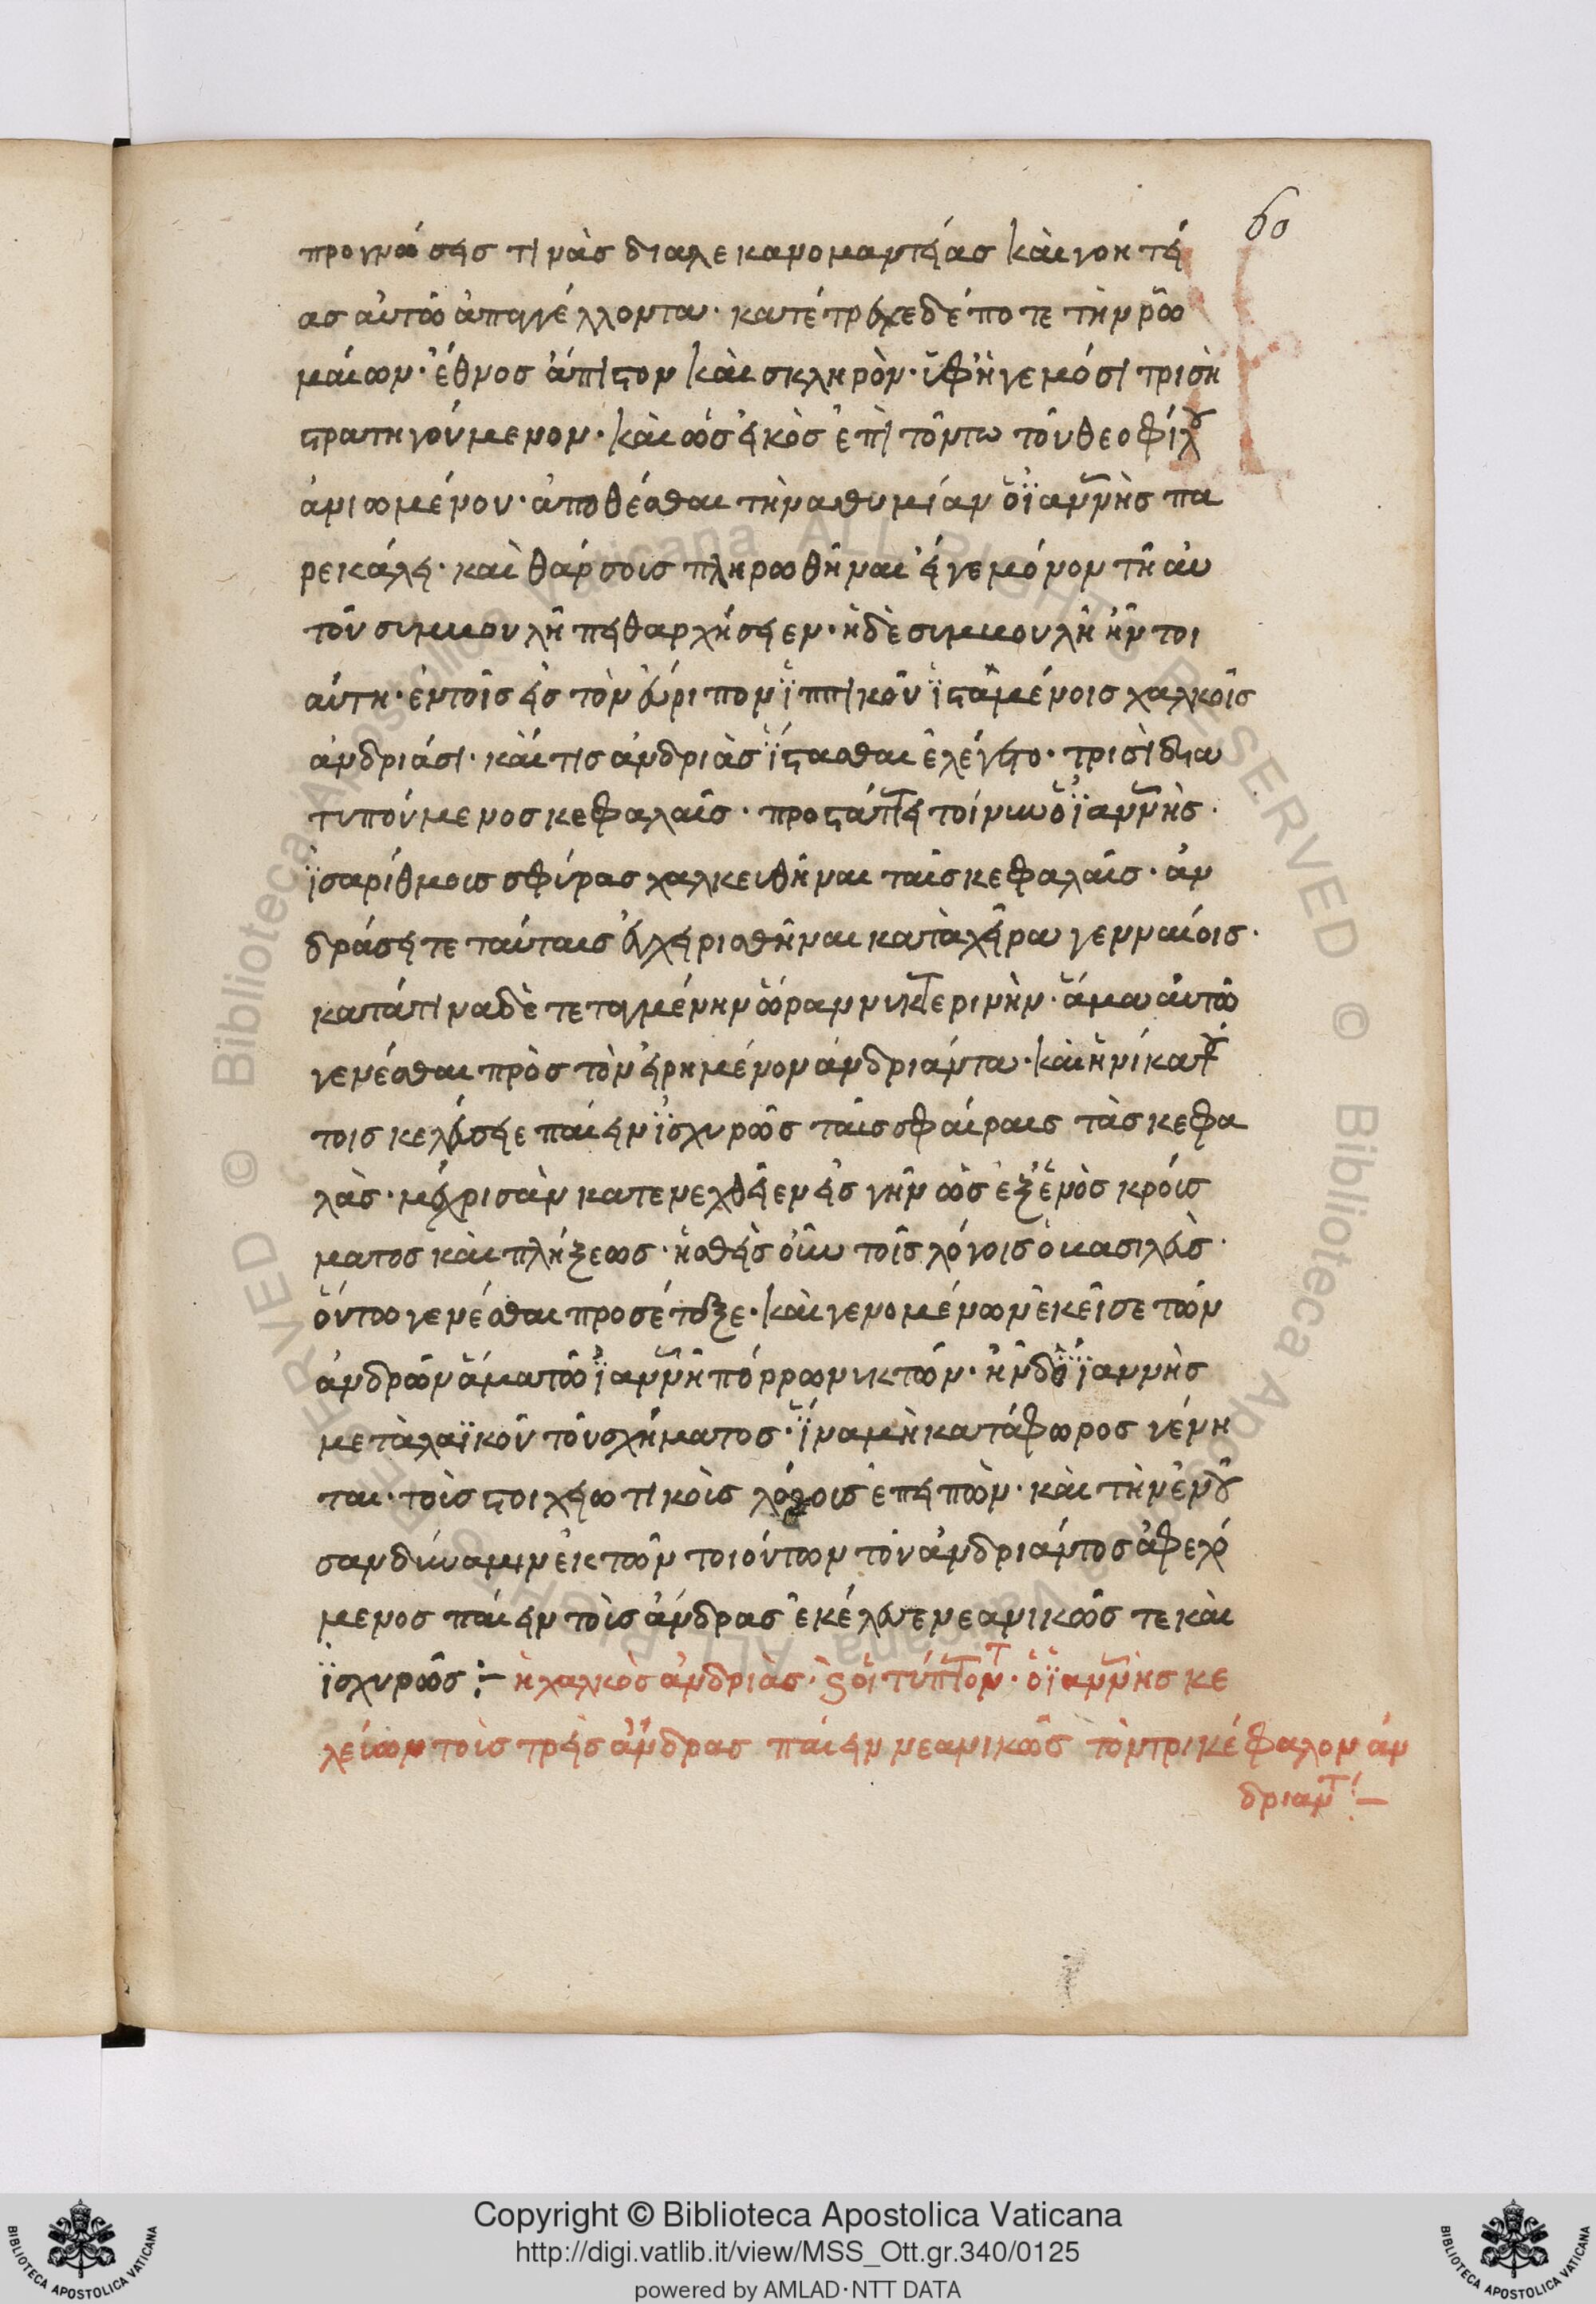 60
προγνώσεις τινὰς διαλεκανομαντείας καὶ γοητεί
ας αὐτῶ ἀπαγγέλλοντα· κατέτρεχε δέ ποτε τὴν ῥω
μαίων· ἔθνος ἄπιστον καὶ σκληρὸν· ὑφ' ἡγεμόσι τρισὶ
στρατηγούμενον· καὶ ὡς εἰκὸς ἐπὶ τούτω τοῦ θεοφίλου
ἀνιωμένου· ἀποθέσθαι τὴν ἀθυμίαν ὁ ἰαννὴς πα
ρεκάλει· καὶ θάρσοις πληρωθῆναι εἴγε μόνον τῆ αὐ
τοῦ συμβουλῆ πειθαρχήσειεν· ἡ δὲ συμβουλὴ ἦν τοι
αύτη· ἐν τοῖς εἰς τὸν εὔριπον ἱππικοῦ ἱσταμένοις χαλκοῖς
ἀνδριάσι· καί τις ἀνδριὰς ἵστασθαι ἐλέγετο· τρισὶ δια
τυπούμενος κεφαλαῖς· προστάττει τοίνυν ὁ ἰαννὴς·
ἰσαρίθμοις σφύρας χαλκευθῆναι ταῖς κεφαλαῖς· ἀν
δράσει τε ταύταις ἐγχειρισθῆναι κατὰ χεῖρα γενναίοις·
κατά τινα δὲ τεταγμένην ὥραν νυκτερινὴν· ἅμα αὐτῶ
γενέσθαι πρὸς τὸν εἰρημένον ἀνδριάντα· καὶ ἡνίκα τού
τοις κελεύσειε παίειν ἰσχυρῶς ταῖς σφαίραις τὰς κεφα
λὰς· μέχρις ἂν κατενεχθεῖεν εἰς γῆν ὡς ἐξ ἑνὸς κρούς
ματος καὶ πλήξεως· ἡσθεὶς οὖν τοῖς λόγοις ὁ βασιλεὺς·
οὕτω γενέσθαι προσέταξε· καὶ γενομένων ἐκεῖσε τῶν
ἀνδρῶν ἅμα τῶ ἰαννῆ πόρρω νυκτῶν· ἦν δ' ὁ ἰαννὴς
μετὰ λαϊκοῦ τοῦ σχήματος· ἵνα μὴ κατάφωρος γένη
ται· τοὺς στοιχειωτικοὺς λόγους ἐπειπὼν· καὶ τὴν ἐνοῦ
σαν δύναμιν ἐκ τῶν τοιούτων τοῦ ἀνδριάντος ἀφεχό
μενος παίειν τοὺς ἄνδρας ἐκέλευε νεανικῶς τε καὶ
ἰσχυρῶς :– ἡ χαλκὸς ἀνδριὰς· ς οἱ τύπτοντ· ὁ ἰαννὴς κε
λεύων τοὺς τρεῖς ἄνδρας παίειν νεανικῶς τὸν τρικέφαλον ἀν
δριαντ :–
Copyright © Biblioteca Apostolica Vaticana
http://digi.vatlib.it/view/MSS_Ott.gr.340/0125
powered by AMLAD·NTT DATA